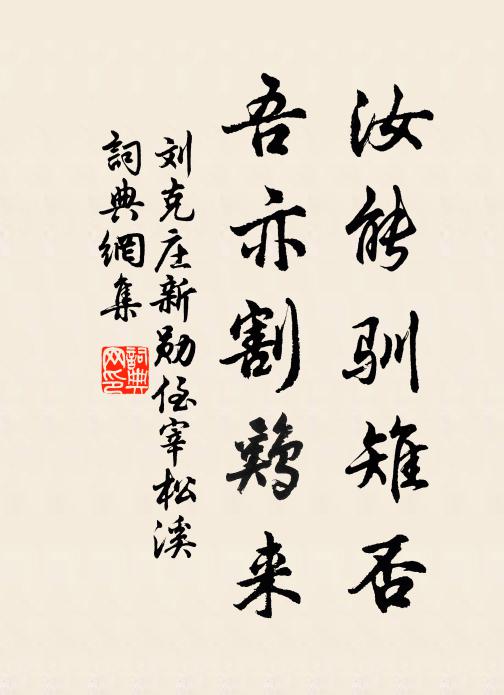 汝能驯雉否
吾亦割鸡来
刘克庄新勋侄宰松溪
詞典網集
詞典
网印